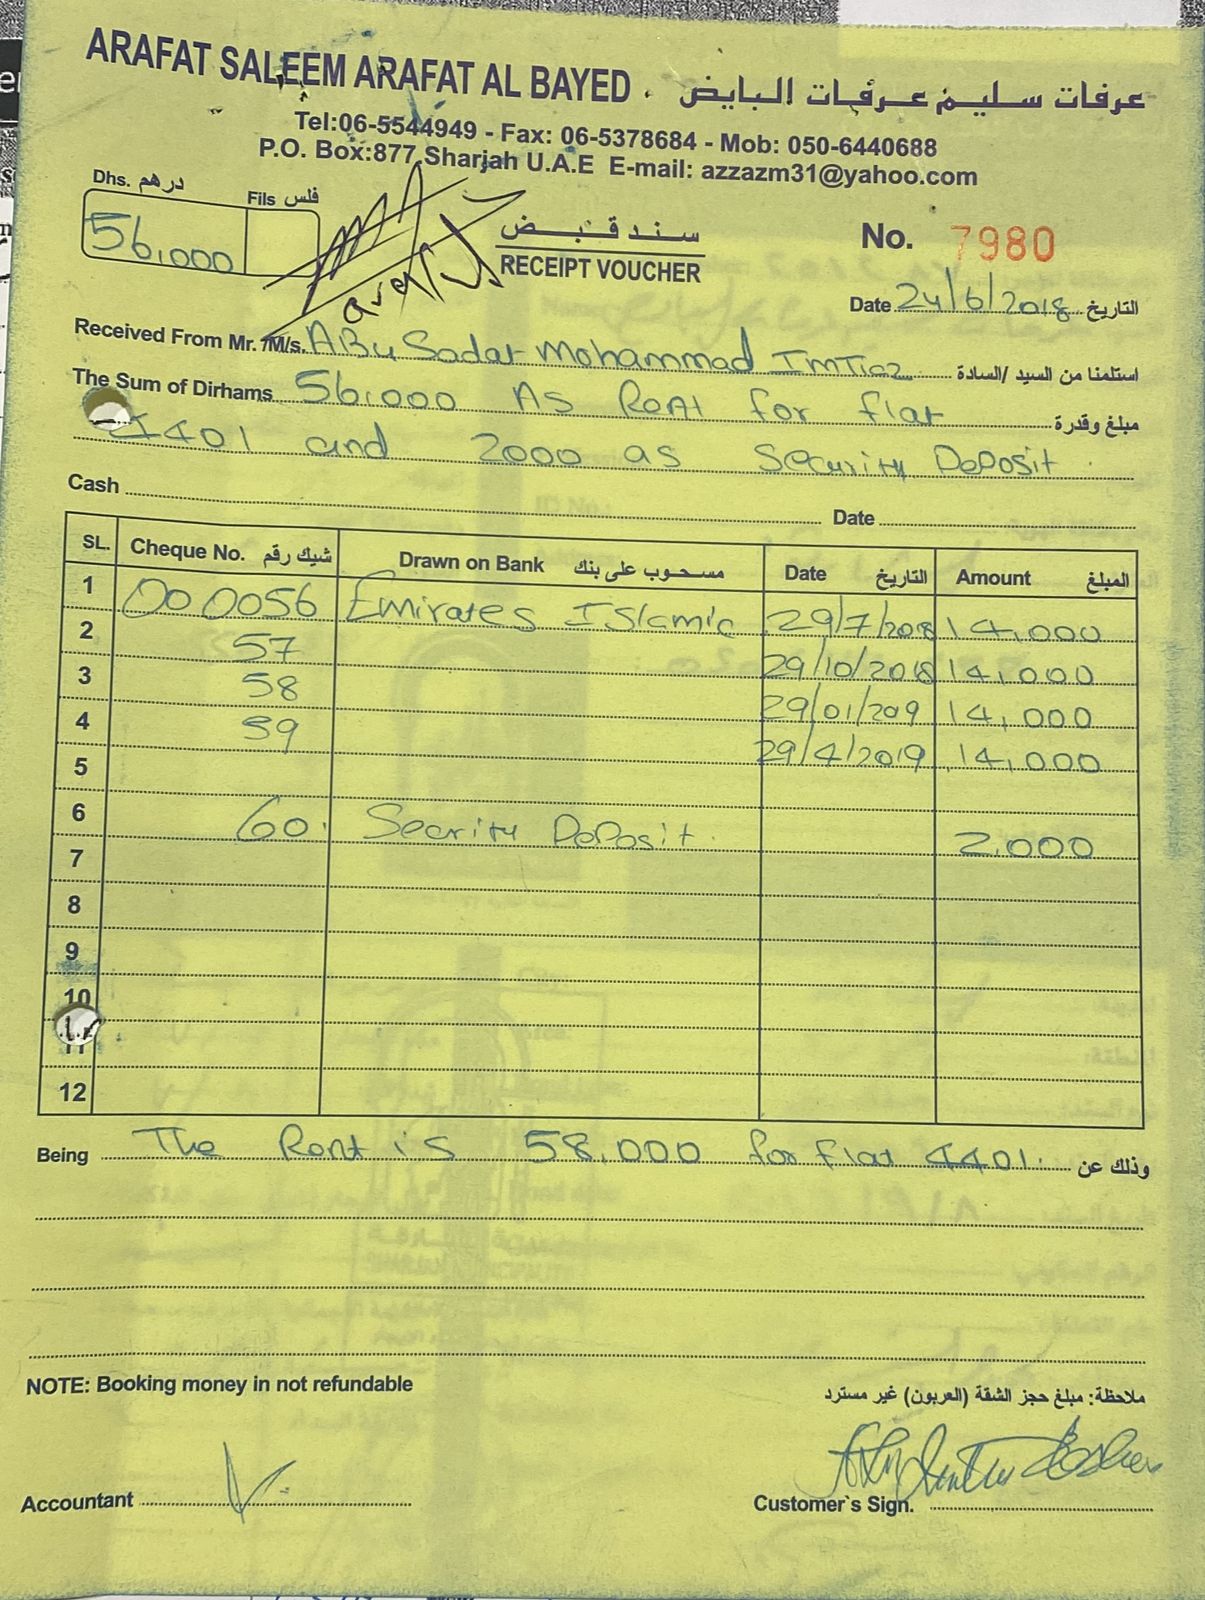 ARAFAT SALEEM ARAFAT AL BAYED . عرفات سليم عرفات البايض
Tel:06-5544949 - Fax: 06-5378684 - Mob: 050-6440688
P.O. Box:877, Sharjah U.A.E E-mail: azzazm31@yahoo.com
Dhs. درهم Fils فلس
56,000
سند قبض
RECEIPT VOUCHER
No. 7980
Date 24/6/2018 التاريخ
Received From Mr. /M/s. ABu Sadat Mohammad ImTiaz استلمنا من السيد /السادة
The Sum of Dirhams 56,000 As Rent for flat مبلغ وقدرة
4401 and 2000 as Security Deposit
Cash Date
SL. Cheque No. شيك رقم Drawn on Bank مسحوب على بنك Date التاريخ Amount المبلغ
1 000056 Emirates ISlamic 29/7/2018 14,000
2 57 29/10/2018 14,000
3 58 29/01/209 14,000
4 59 29/4/2019 14,000
5
6 60. Secrity Deposit. 2,000
7
8
9
10
11
12
Being The Rent is 58,000 for flat 4401. وذلك عن
NOTE: Booking money in not refundable ملاحظة: مبلغ حجز الشقة (العربون) غير مسترد
Accountant Customer`s Sign.